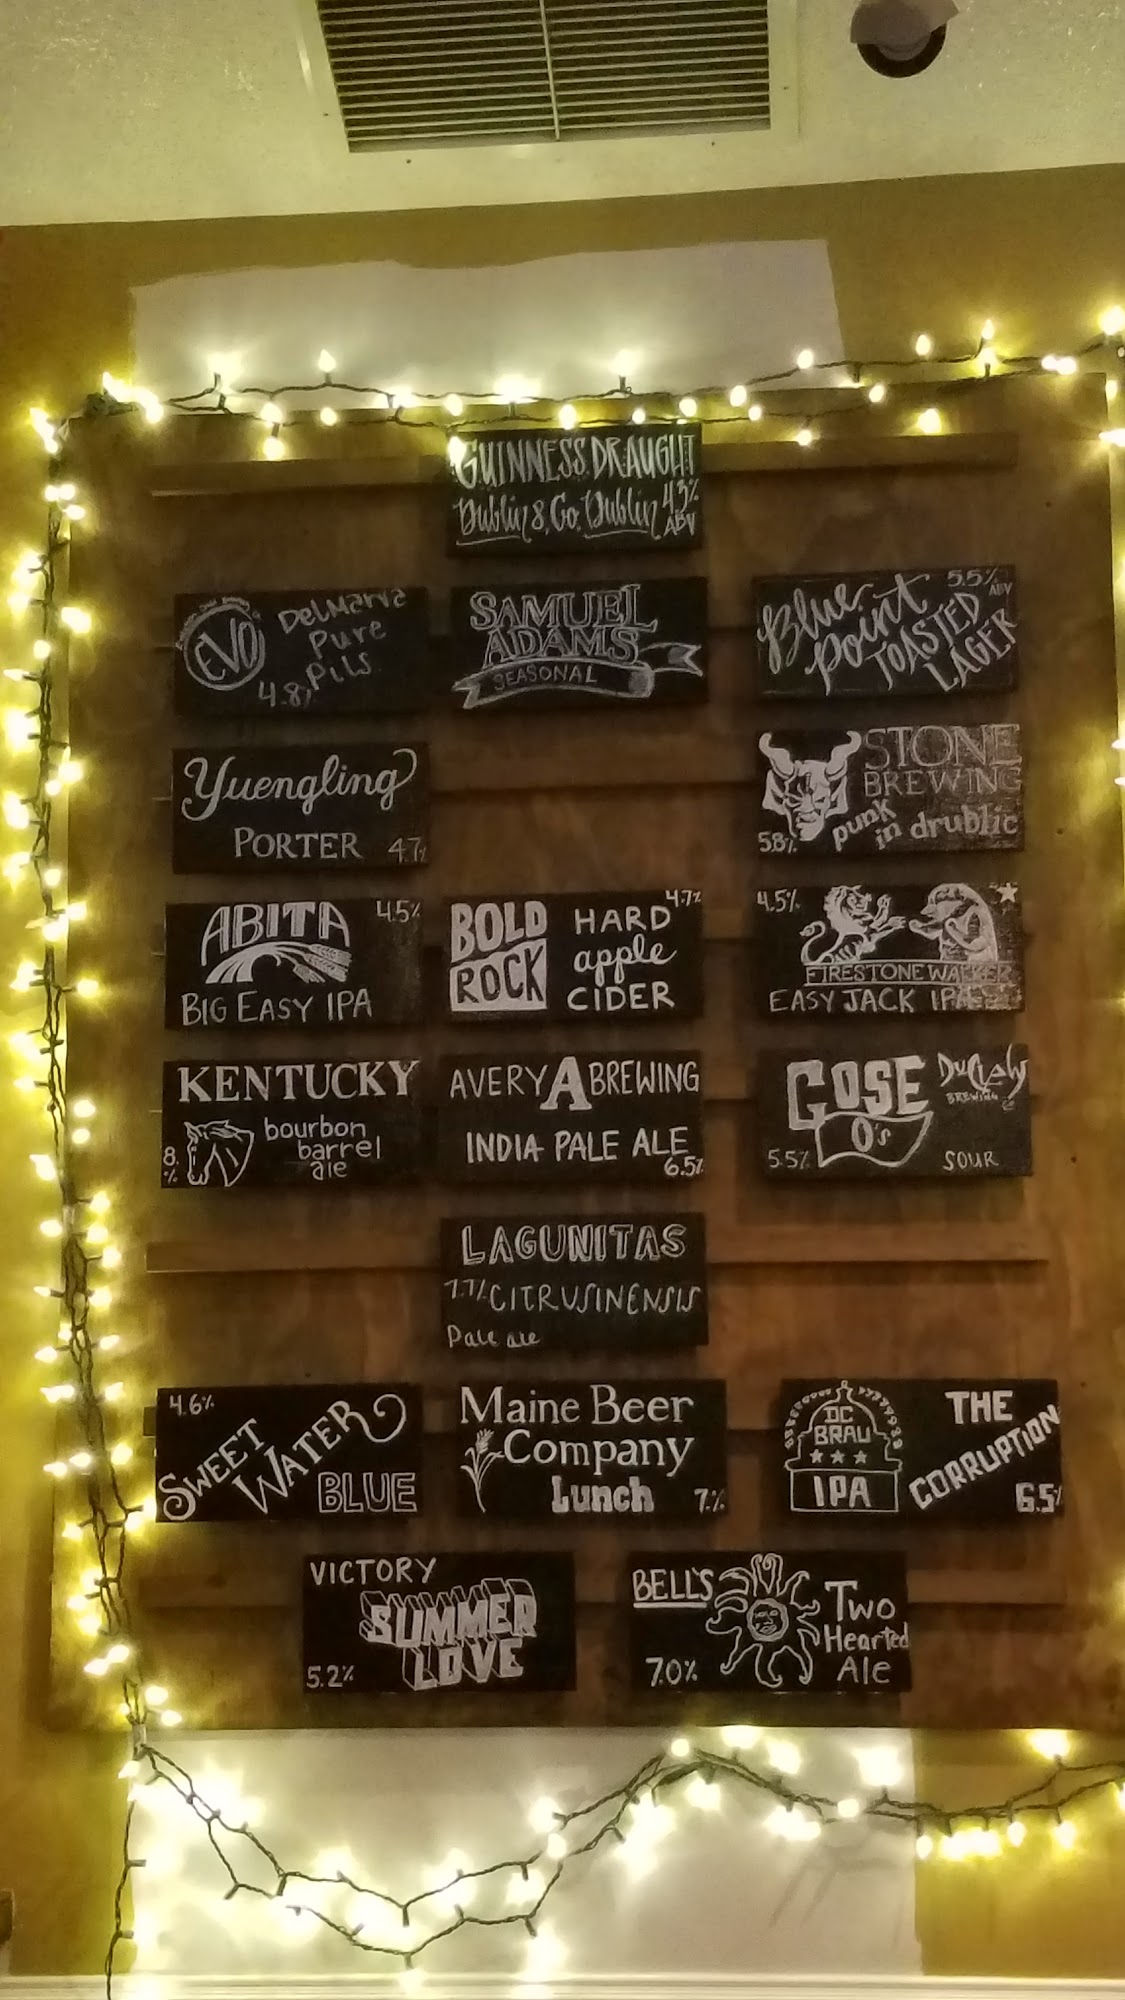 GUINNESS DRAUGHT
Dublin 8, Co. Dublin 4.3%
ABV
EVO
DelMarva
Pure
Pils
4.8%
SAMUEL
ADAMS
SEASONAL
Blue
Point
5.5%
ABV
TOASTED
LAGER
Yuengling
PORTER 4.7%
STONE
BREWING
punk
in drublic
5.8%
ABITA 4.5%
BIG EASY IPA
BOLD
ROCK
HARD 4.7%
apple
CIDER
4.5%
FIRESTONE WALKER
EASY JACK IPA
KENTUCKY
bourbon
barrel
ale
8.%
AVERY A BREWING
INDIA PALE ALE
6.5%
GOSE
O's
DuClaw
BREWING
5.5% SOUR
LAGUNITAS
7.7% CITRUSINENSIS
Pale ale
4.6%
SWEET
WATER
BLUE
Maine Beer
Company
Lunch 7.%
DC
BRAU
IPA
THE
CORRUPTION
6.5%
VICTORY
SUMMER
LOVE
5.2%
BELL'S
Two
Hearted
Ale
7.0%